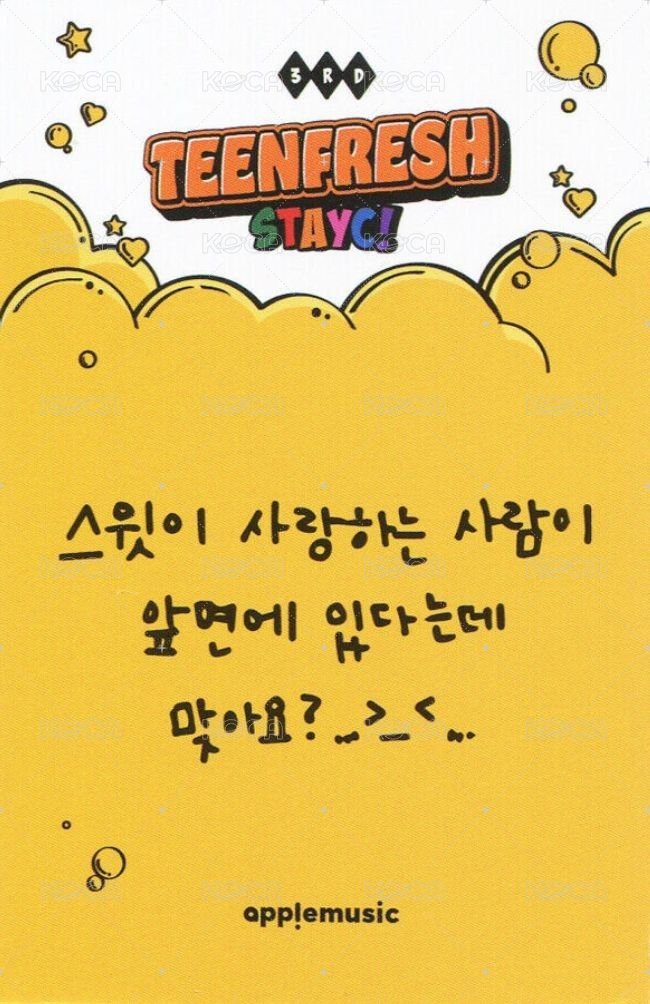 3RD
TEENFRESH
STAYC!
스윗이 사랑하는 사람이
앞면에 있다는데
맞아요? ...>_<...
applemusic
KOCA